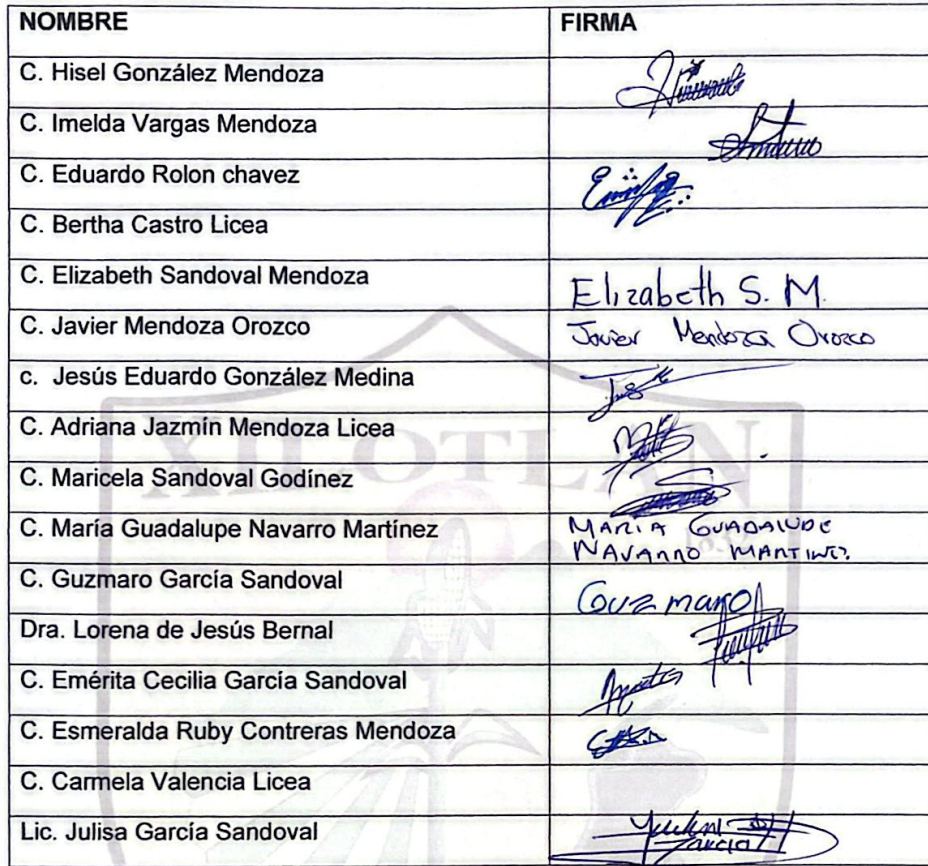 NOMBRE FIRMA
C. Hisel González Mendoza
C. Imelda Vargas Mendoza
C. Eduardo Rolon chavez
C. Bertha Castro Licea
C. Elizabeth Sandoval Mendoza Elizabeth S. M.
C. Javier Mendoza Orozco Javier Mendoza Orozco
c. Jesús Eduardo González Medina
C. Adriana Jazmín Mendoza Licea
XILOTLÁN
C. Maricela Sandoval Godínez
C. María Guadalupe Navarro Martínez MARIA GUADALUPE
NAVARRO MARTINEZ.
C. Guzmaro García Sandoval Guzmaro
Dra. Lorena de Jesús Bernal
C. Emérita Cecilia García Sandoval
C. Esmeralda Ruby Contreras Mendoza
C. Carmela Valencia Licea
Lic. Julisa García Sandoval